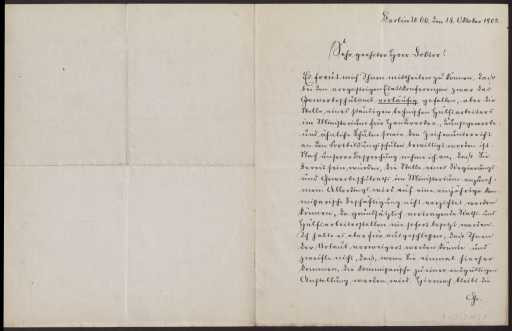 Berlin W. 66, den 18. Oktober 1902.
Sehr geehrter Herr Doktor!
Es freut mich Ihnen mitteilen zu können, daß
bei den vorgestrigen Etatskonferenzen zwar das
Gewerbeschulamt vorläufig gefallen, aber die
Stelle eines ständigen technischen Hülfsarbeiters
im Ministerium für Handwerker-, Kunstgewerbe-
und ähnliche Schulen sowie den Zeichenunterricht
an den Fortbildungsschulen bewilligt worden ist.
Nach unserer Besprechung nehme ich an, daß Sie
bereit sein würden, die Stelle eines Regierungs-
und Gewerbeschulrats im Ministerium anzuneh-
men. Allerdings wird auf eine einjährige kom-
missarische Beschäftigung nicht verzichtet werden
können, da grundsätzlich vortragende Rats- und
Hülfsarbeiterstellen nie sofort besetzt werden.
Ich halte es aber für ausgeschlossen, daß Ihnen
der Urlaub verweigert werden könnte und
zweifle nicht, daß, wenn Sie einmal hierher
kommen, die kommissarische zu einer endgültigen
Anstellung werden wird. Hiernach bleibt die